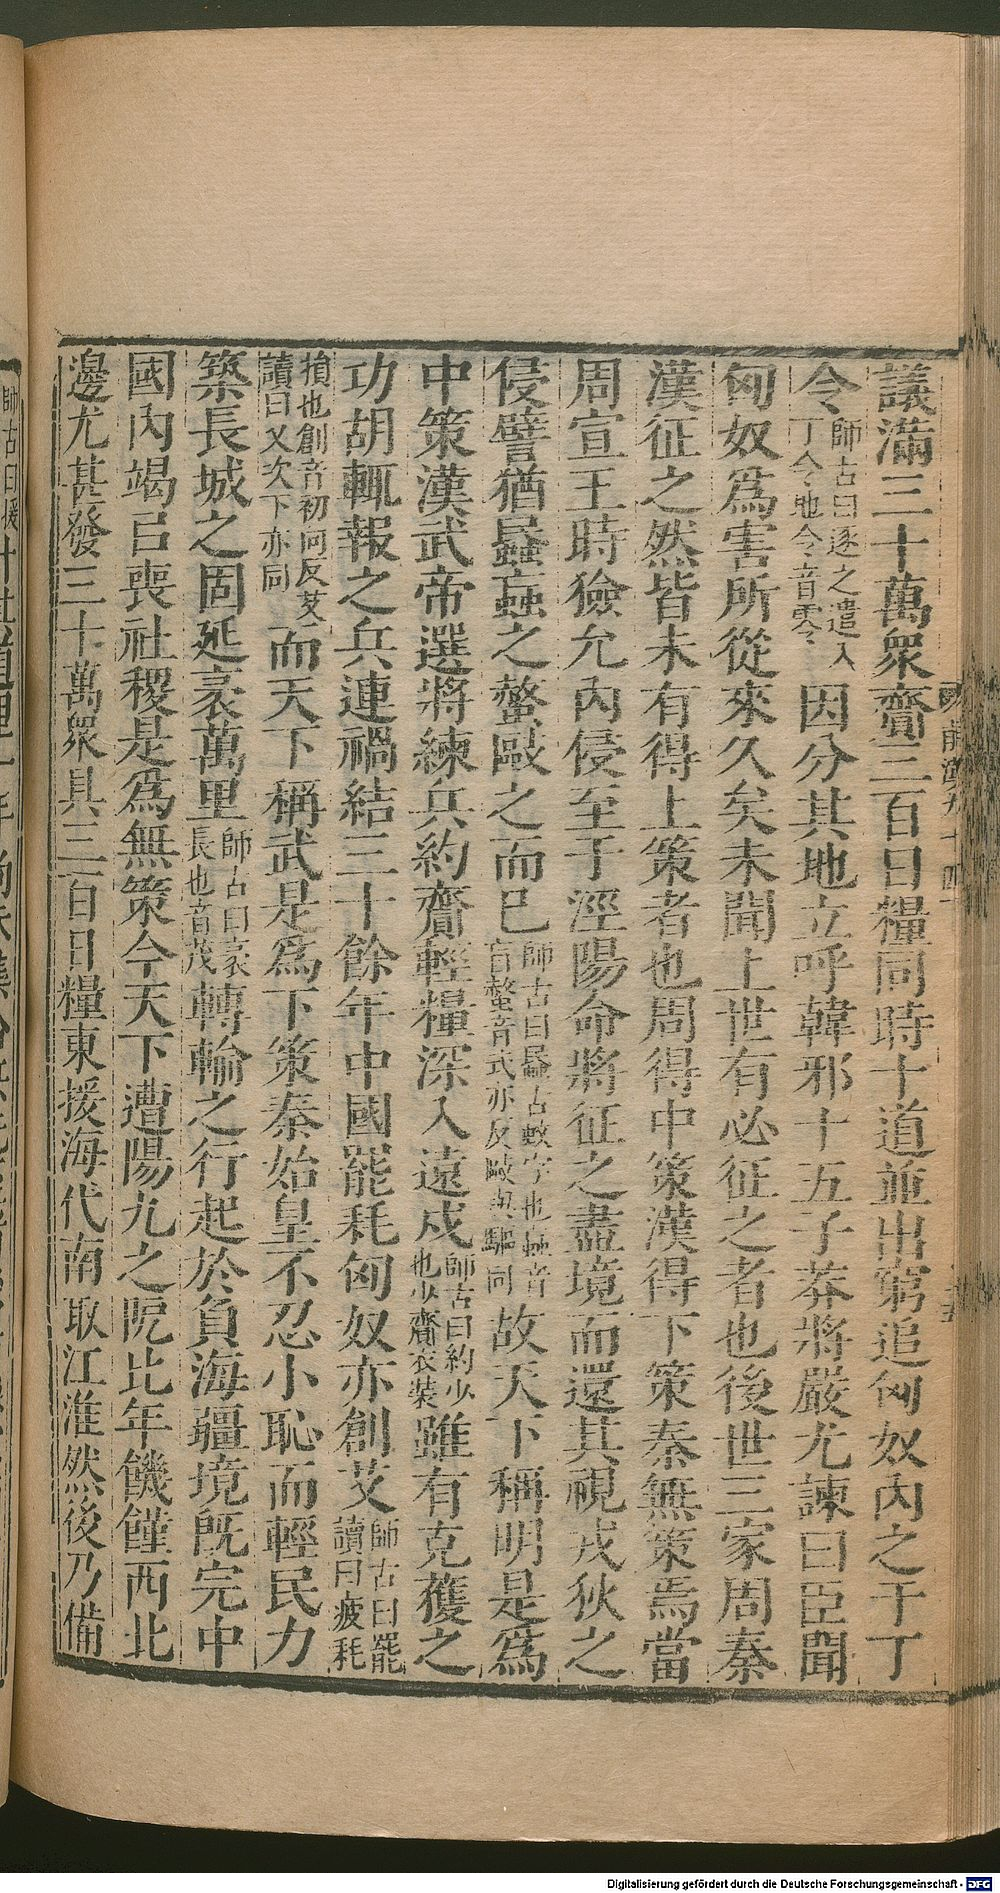 議滿三十萬衆齎三百日糧同時十道並出窮追匈奴內之于丁
令師古曰逐之遣入丁令地令音零因分其地立呼韓邪十五子莽將嚴尤諫曰臣聞
匈奴爲害所從來久矣未聞上世有必征之者也後世三家周秦
漢征之然皆未有得上策者也周得中策漢得下策秦無策焉當
周宣王時獫允內侵至于涇陽命將征之盡境而還其視戎狄之
侵譬猶蟁蝱之螫敺之而已師古曰蟁古蚊字也蝱音盲螫音式亦反敺與驅同故天下稱明是爲
中策漢武帝選將練兵約齎輕糧深入遠戍師古曰約少也少齎衣裝雖有克獲之
功胡輒報之兵連禍結三十餘年中國罷耗匈奴亦創艾師古曰罷讀曰疲耗
損也創音初向反艾讀曰乂次下亦同而天下稱武是爲下策秦始皇不忍小恥而輕民力
築長城之固延袤萬里師古曰袤長也音茂轉輸之行起於負海疆境既完中
國內竭㠯喪社稷是爲無策今天下遭陽九之阸比年饑饉西北
邊尤甚發三十萬衆具三百日糧東援海代南取江淮然後乃備
師古曰援
前漢九十四
Digitalisierung gefördert durch die Deutsche Forschungsgemeinschaft - DFG